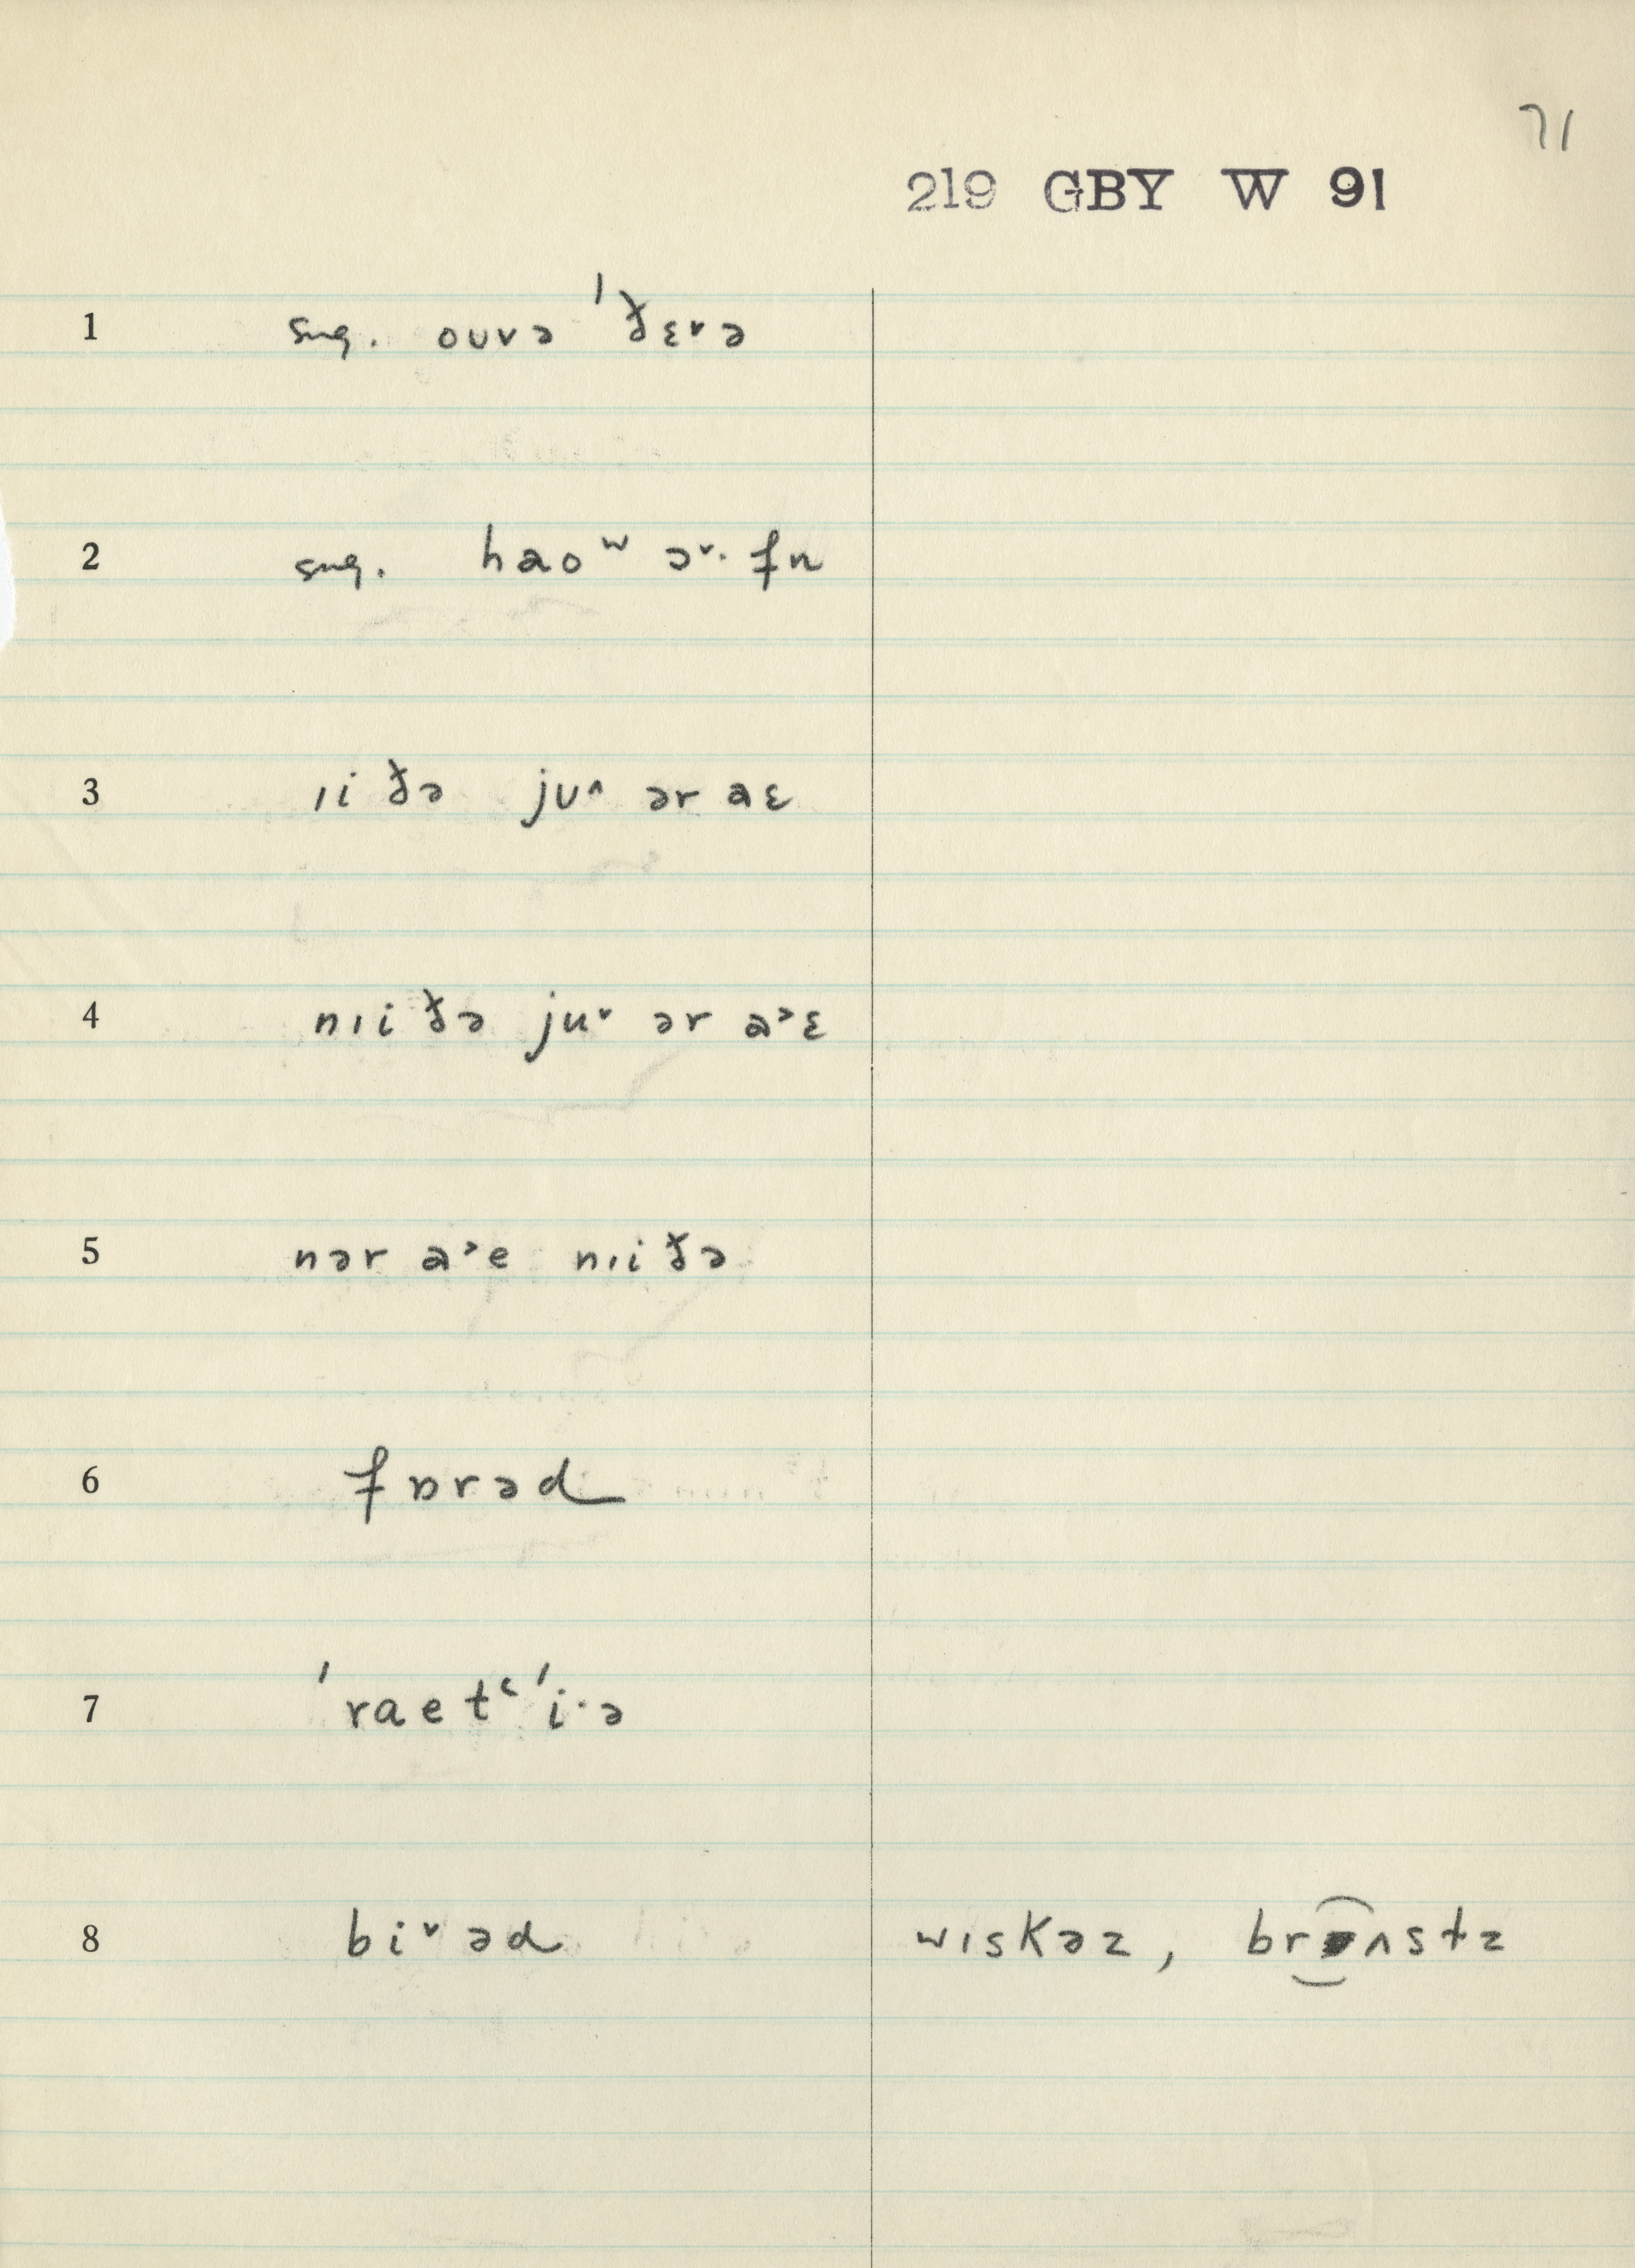 71
219 GBY W 91
1 sug. oʊvə ˈðɛvə
2 sug. haoʷ ə˅· fn
3 ɪi ðə jʊ˄ ər aɛ
4 nɪi ðə ju˅ ər a˃ɛ
5 nər a˃e nɪi ðə
6 fɒrəd
7 ˈraetʻˈi·ə
8 bi˅əd wɪskəz, brʌstz